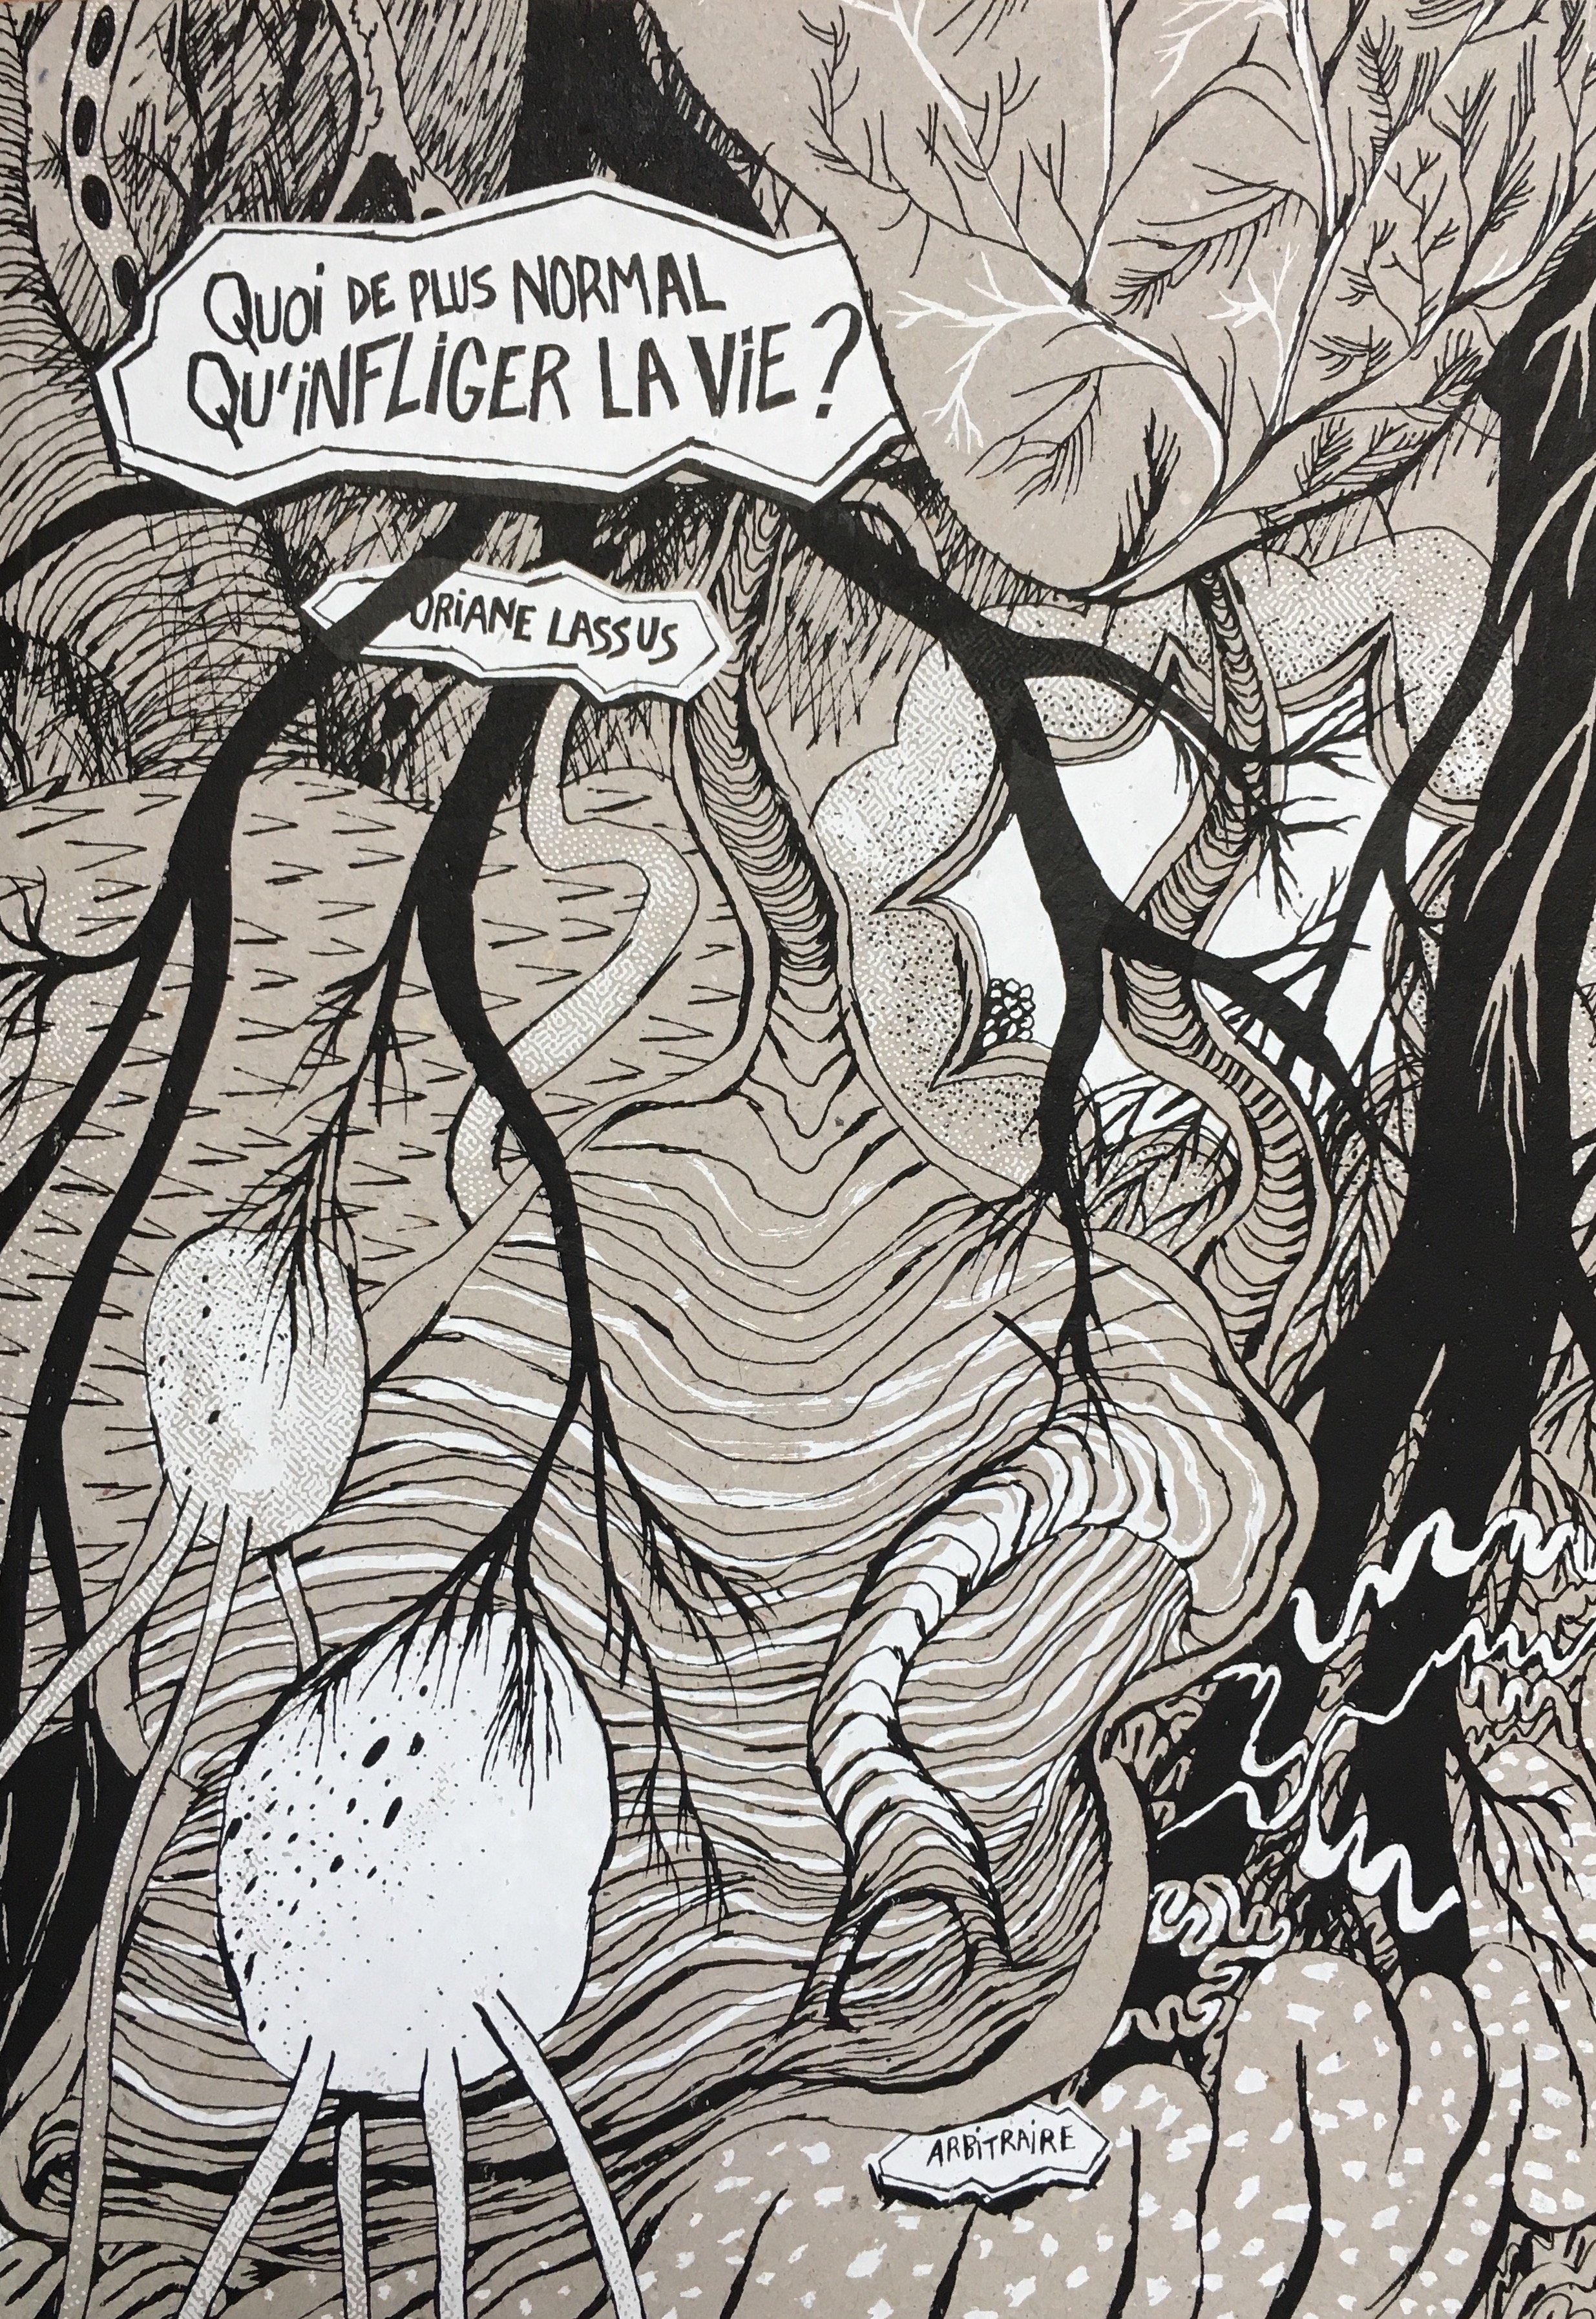 QUOI DE PLUS NORMAL
QU'INFLIGER LA VIE ?
ORIANE LASSUS
ARBITRAIRE